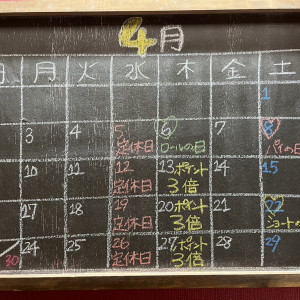 4月
月 火 水 木 金 土
1
3 4 5 6 7 8
定休日 ロールの日 パイの日
10 11 12 13 ポイント 14 15
定休日 3倍
17 18 19 20 ポイント 21 22
定休日 3倍 ショート
30 24 25 26 27 ポイント 28 29
定休日 3倍